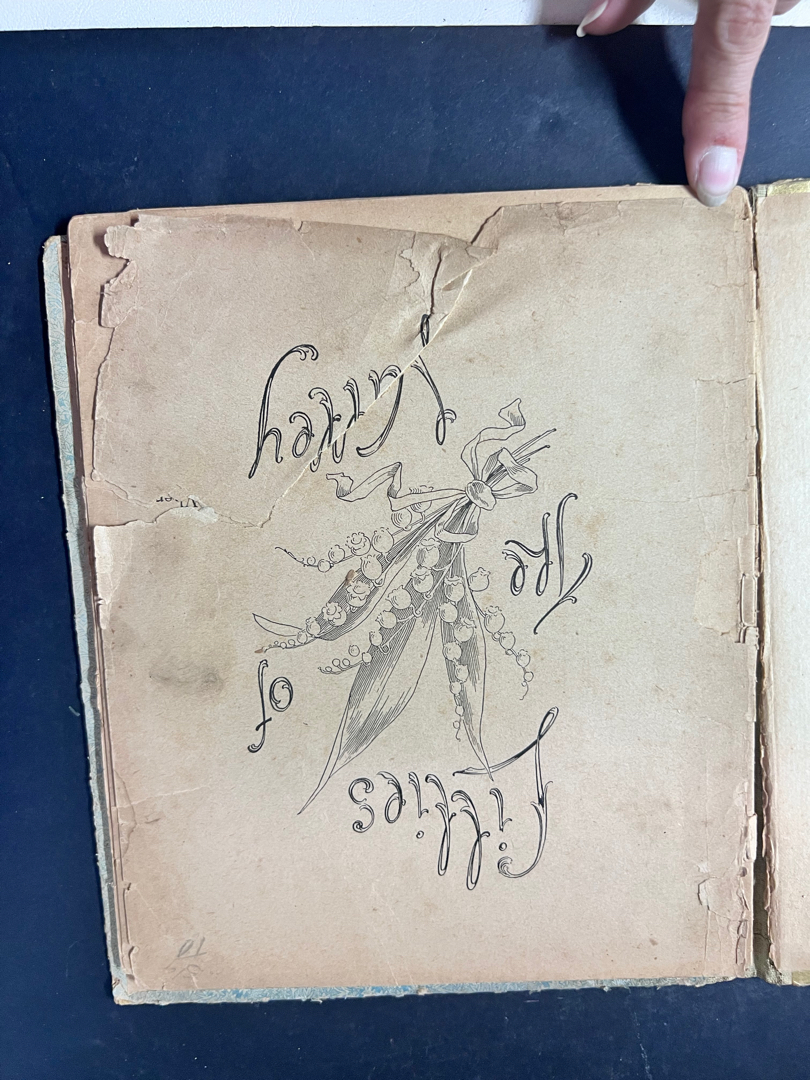 Lillies
of
the
Valley